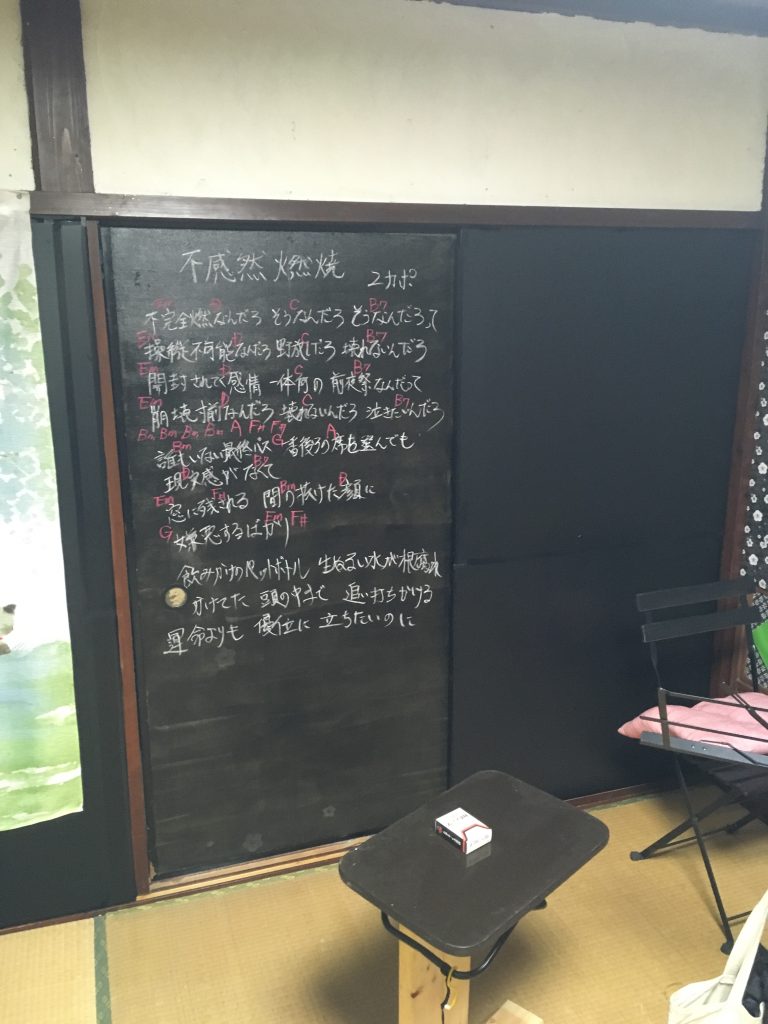 不感然燃焼 2カポ
Em D C B7
不完全燃なんだろ そうなんだろ そうなんだろって
Em D C B7
操縦不可能なんだろ 野放しだろ 壊れないんだろ
Em D C B7
開封されてく感情 一体何の 前夜祭なんだって
Em D C B7
崩壊寸前なんだろ 壊れないんだろ 泣きたいんだろ
Bm Bm Bm Bm A F# F#
Bm G A
誰もいない最終バス 一番後ろの席を選んでも
D B7
現実感がなくて
Em F# Bm B
忍に残される 間の抜けた顔に
G Em F#
嫌悪するばかり
飲みかけのペットボトル 生ぬるい水が
かけてた 頭の中まで 追い打ちかける
運命よりも 優位に 立ちたいのに